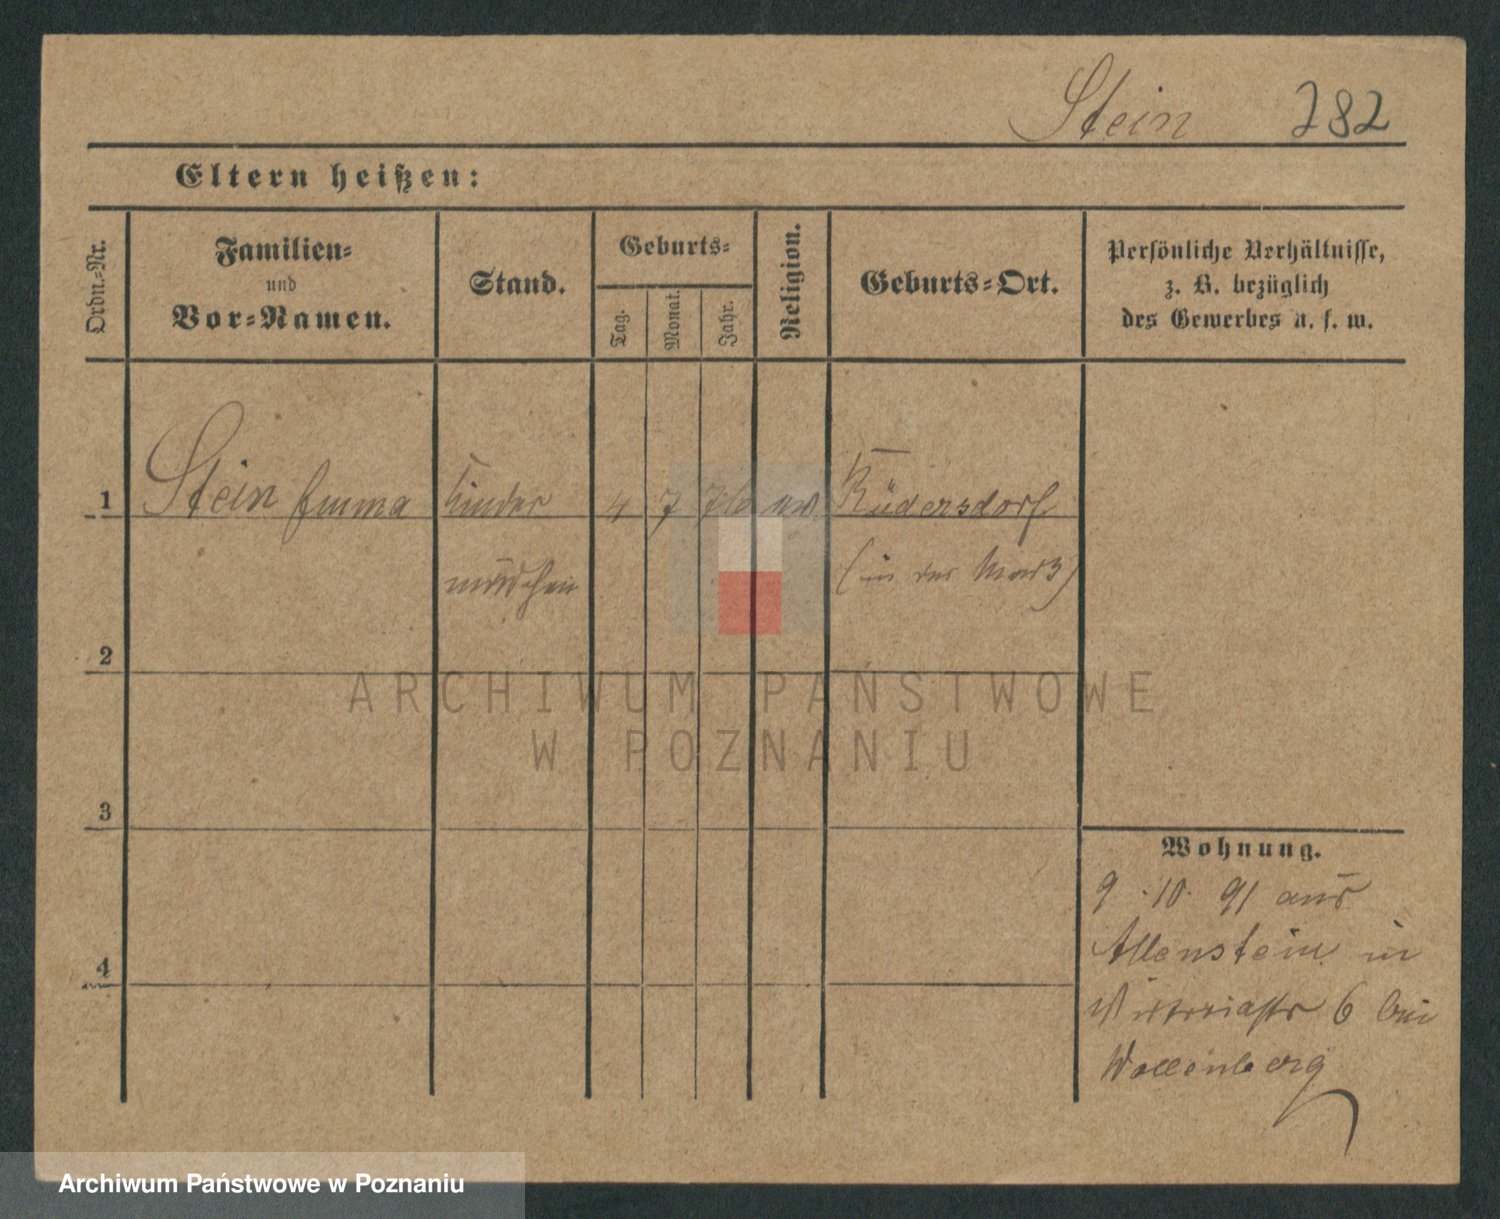 Stein 282
Eltern heißen:
Ordn.-Nr.
Familien-
und
Vor-Namen.
Stand.
Geburts-
Tag.
Monat.
Jahr.
Religion.
Geburts-Ort.
Persönliche Verhältnisse,
z. B. bezüglich
des Gewerbes u. s. w.
1 Stein Emma Kinder 4 7 76 ev. Rüdersdorf
mädchen (in der Mark)
2
3
4
Wohnung.
9. 10. 91 aus
Allenstein in
Victoriastr 6 bei
Wollenberg
ARCHIWUM PAŃSTWOWE
W POZNANIU
Archiwum Państwowe w Poznaniu